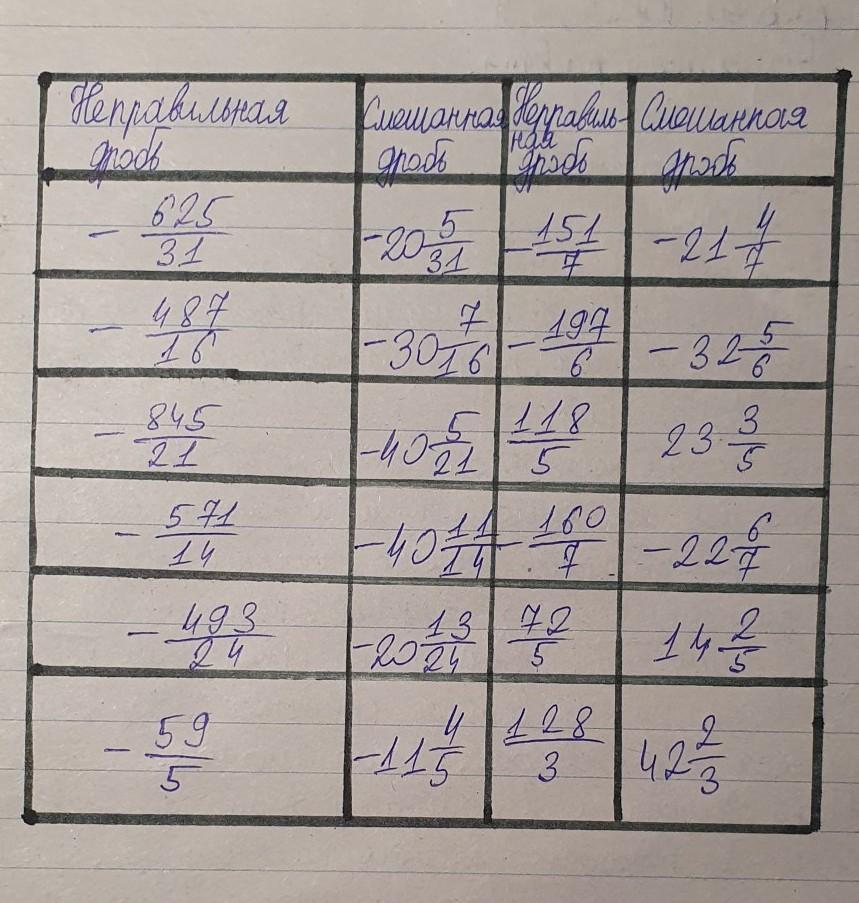 Неправильная дробь | Смешанная дробь | Неправиль-ная дробь | Смешанная дробь
-625/31 | -20 5/31 | -151/7 | -21 4/7
-487/16 | -30 7/16 | -197/6 | -32 5/6
-845/21 | -40 5/21 | 118/5 | 23 3/5
-571/14 | -40 11/14 | -160/7 | -22 6/7
-493/24 | -20 13/24 | 72/5 | 14 2/5
-59/5 | -11 4/5 | 128/3 | 42 2/3